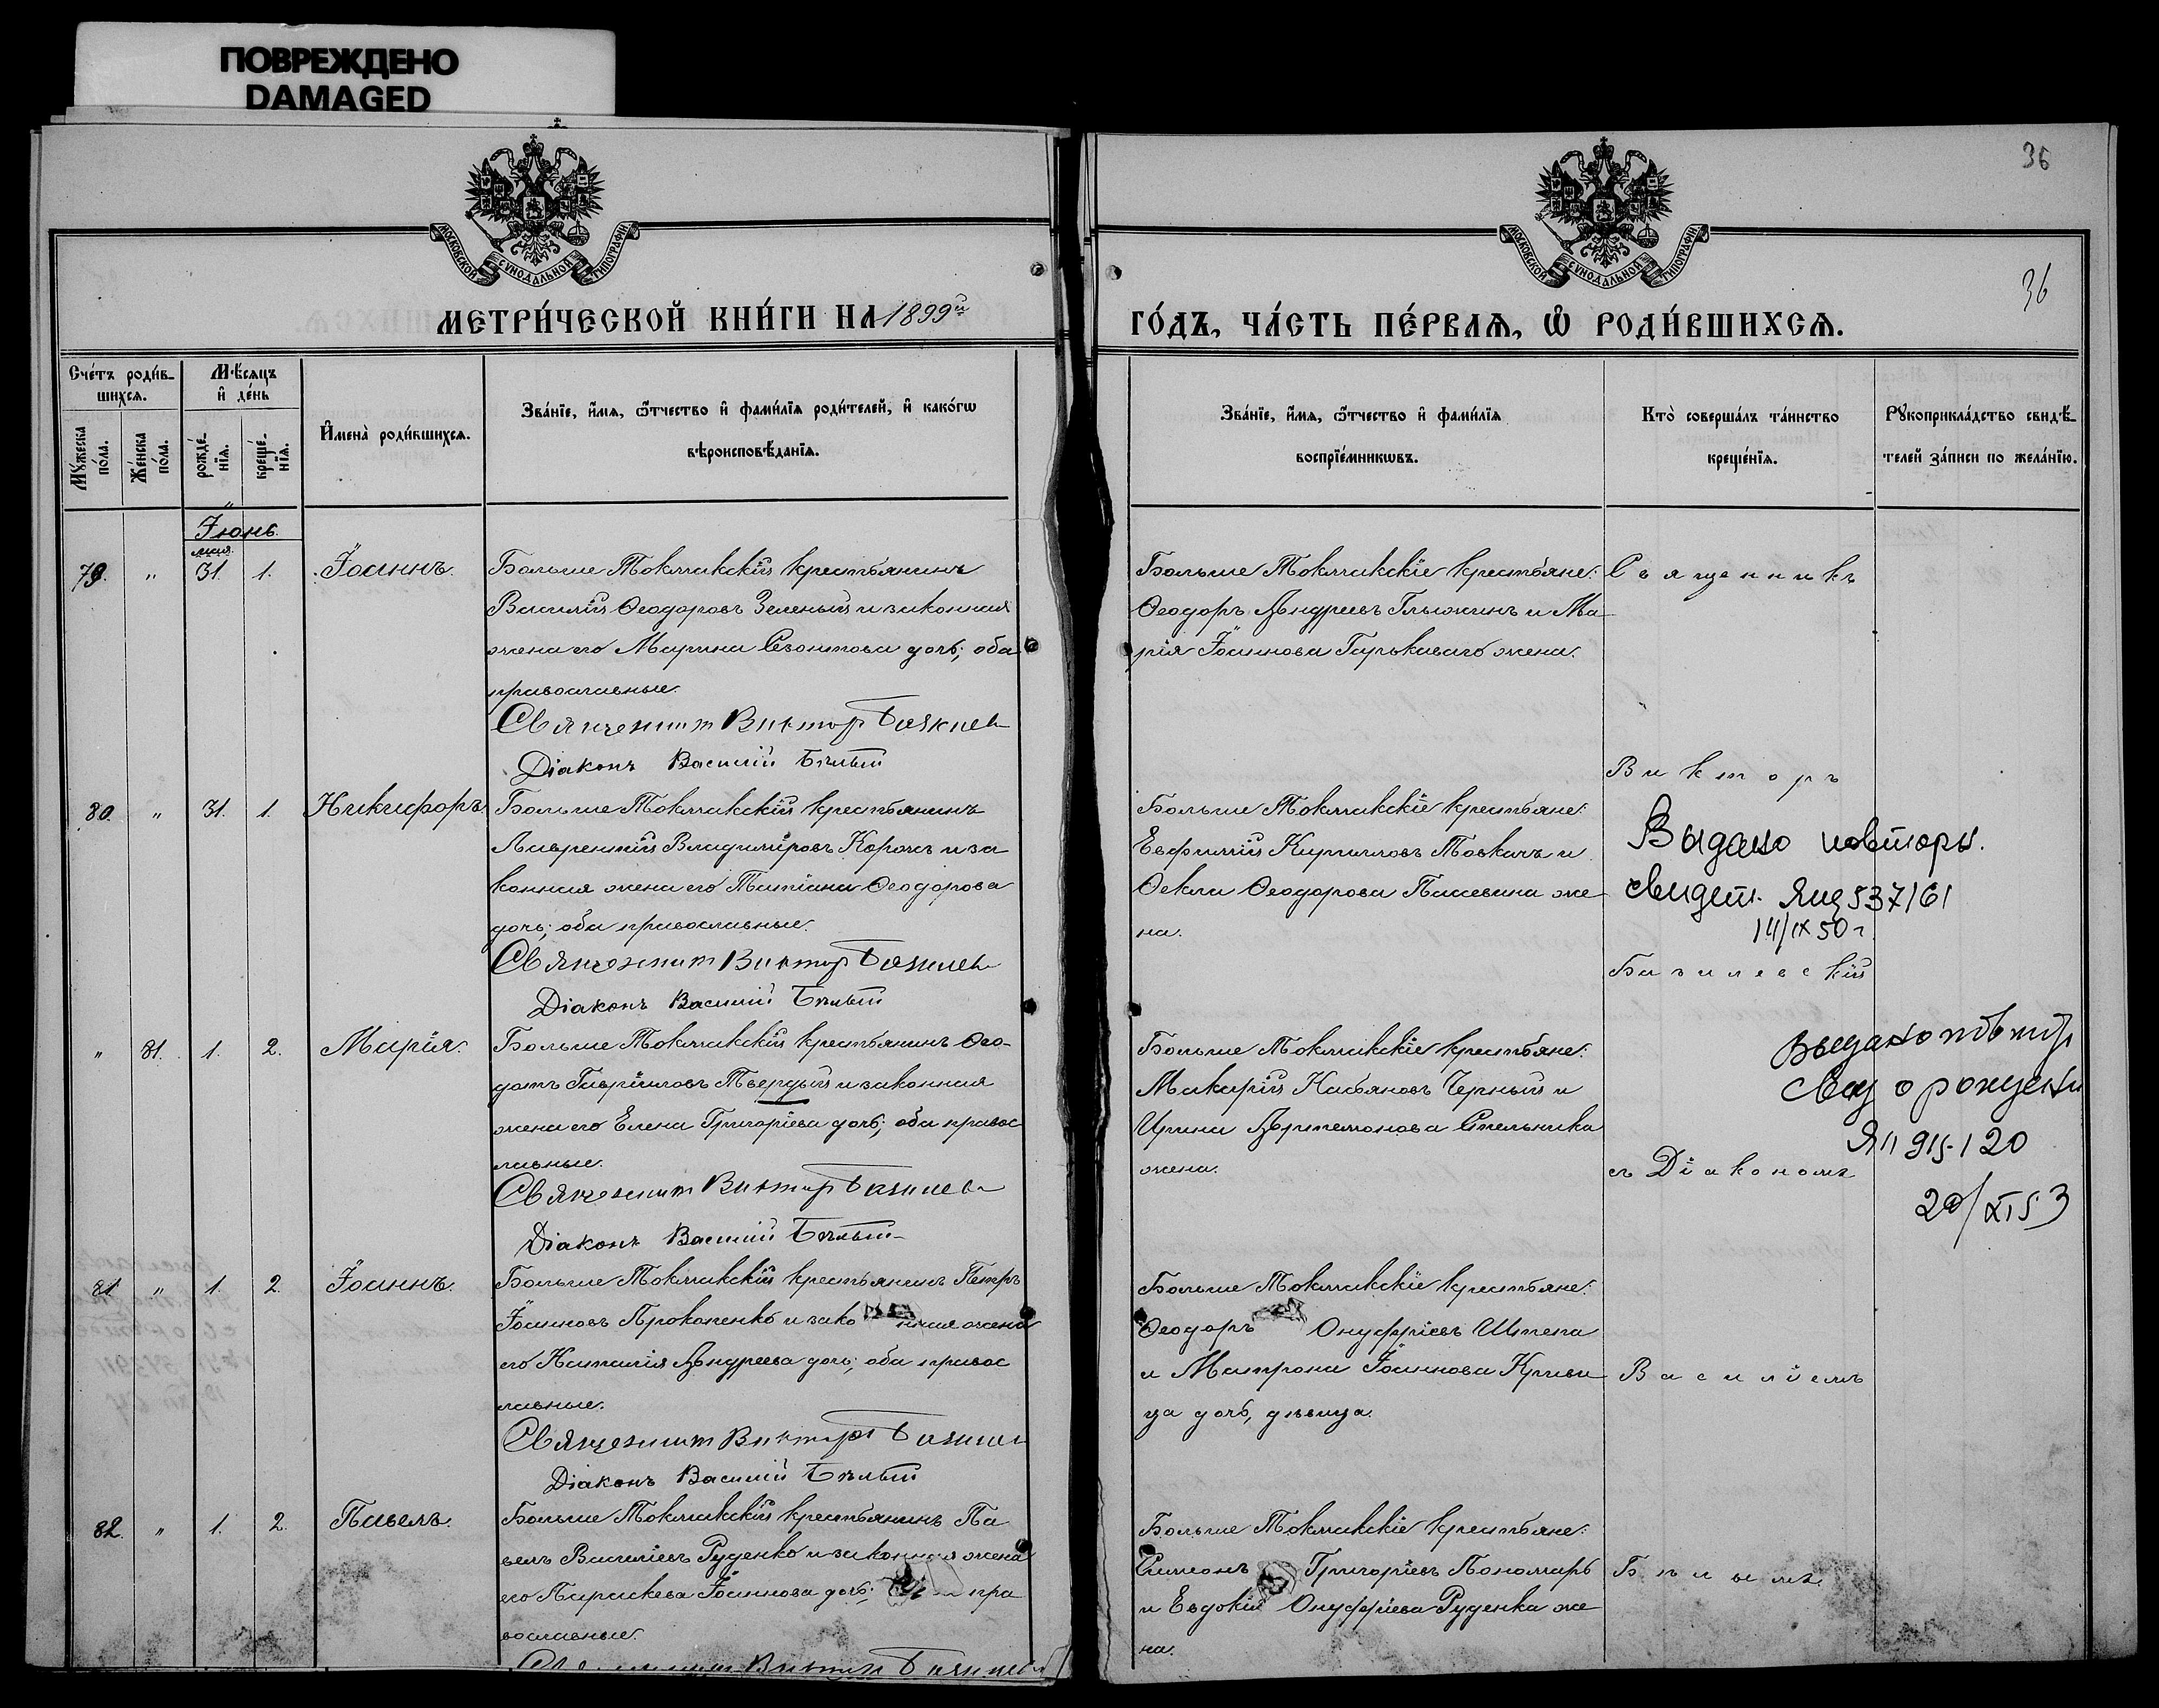 ПОВРЕЖДЕНО
DAMAGED
36
МОСКОВСКОЙ СѴНОДАЛЬНОЙ ТИПОГРАФІИ
МОСКОВСКОЙ СѴНОДАЛЬНОЙ ТИПОГРАФІИ
36
МЕТРИ́ЧЕСКОЙ КНИ́ГИ НА 1899й
ГО́ДЪ, ЧА́СТЬ ПЕ́РВАѦ, Ѡ҆ РОДИ́ВШИХСѦ.
Сче́тъ роди́в-
шихсѧ.
Мѣ́сяцъ
и҆ де́нь
Мꙋ́жеска по́ла.
Же́нска по́ла.
рожде́-нїѧ.
креще́-нїѧ.
И҆мена̀ роди́вшихсѧ.
Зва́нїе, и҆́мѧ, ѻ҆́тчество и҆ фами́лїѧ роди́телей, и҆ како́гѡ
вѣроисповѣ́данїѧ.
Зва́нїе, и҆́мѧ, ѻ҆́тчество и҆ фами́лїѧ
воспрїе́мникѡвъ.
Кто̀ соверша́лъ та́инство
креще́нїѧ.
Рꙋкоприкла́дство свидѣ́-
телей за́писи по жела́нїю.
Іюнь.
мая
79. " 31. 1. Іоаннъ.
Больше Токмакскій крестьянинъ
Василій Ѳеодоровъ Зеленый и законная
жена его Марина Леонтова дочь; оба
православные.
Священник Виктор Базилев
Діаконъ Василій Бѣлый
Больше Токмакскіе крестьяне:
Ѳеодоръ Андреевъ Глыжинъ и Ма
рія Іоаннова Гарькаваго жена.
Священникъ
Викторъ
80. " 31. 1. Никифоръ.
Больше Токмакскій крестьянинъ
Лаврентій Владиміровъ Корожъ и за
конная жена его Татіана Ѳеодорова
дочь; оба православные.
Священник Виктор Базилев
Діаконъ Василій Бѣлый
Больше Токмакскіе крестьяне:
Евфимій Кирилловъ Товкачъ и
Ѳекла Ѳеодорова Пасевина же
на.
Выдано повторн.
свидет. ЯЦ 537161
14/IX 50 г.
Базилевскій
" 31. 1. 2. Марія.
Больше Токмакскій крестьянинъ Ѳео-
дотъ Гавріиловъ Твердый и законная
жена его Елена Григоріева дочь; оба правос
лавные.
Священник Виктор Базилев
Діаконъ Василій Бѣлый
Больше Токмакскіе крестьяне:
Макарій Касьяновъ Черный и
Ирина Артемонова Стельника
жена.
Выдано повтор
Свид о рожден
ЯП 915120
20/XI 53
съ Діакономъ
81. " 1. 2. Іоаннъ.
Больше Токмакскій крестьянинъ Петръ
Іоанновъ Прокопенко и законная жена
его Наталія Андреева дочь; оба правос
лавные.
Священник Виктор Базилев
Діаконъ Василій Бѣлый
Больше Токмакскіе крестьяне:
Ѳеодоръ Онуфріевъ Штепа
и Матрона Іоаннова Криви
ца дочь, дѣвица.
Василіемъ
82. " 1. 2. Павелъ.
Больше Токмакскій крестьянинъ Па
велъ Василіевъ Руденко и законная жена
его Параскева Іоаннова дочь; пра
вославные.
Виктор Базилев
Больше Токмакскіе крестьяне:
Симеонъ Григоріевъ Пономарь
и Евдокія Онуфріева Руденка же
на.
Бѣлымъ.